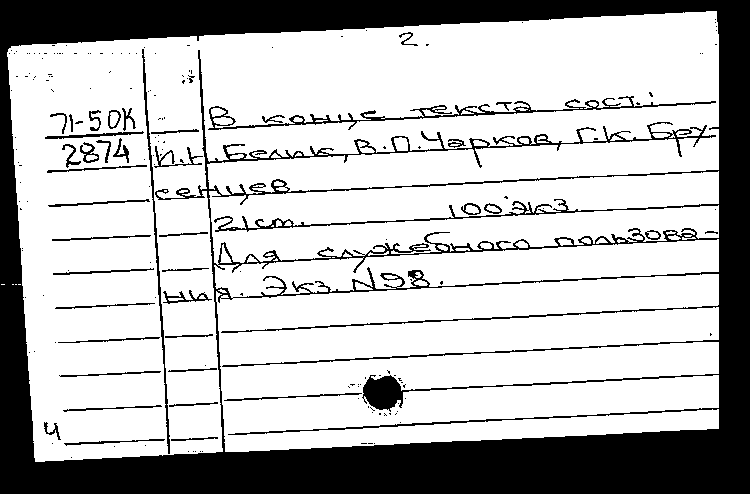 2.
71-50К В конце текста сост.:
2874 И.Н.Белик, В.П.Чарков, Г.К.Бру-
сенцев.
21см. 100 экз.
Для служебного пользова-
ния. Экз. №98.
4